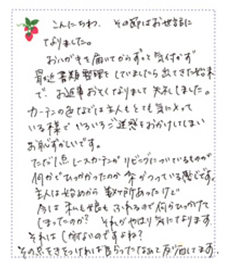 こんにちわ。その節はお世話に
なりました。
おハガキを届いてからずっと気付かず
最近書類整理をしていましたら出てきた始末
で、お返事おそくなりまして失礼しました。
カーテンの色などは主人もとても気に入って
いる様で いろいろご迷惑をおかけしてしまい
お恥ずかしいです。
ただ1点 レースカーテンが リビングについているものが
何かでひっかかったか 糸がつっている感じです。
主人は始めから
今は 私も娘も ふれるので何かひっかけて
しまったのか? それがやはり気になります
それは しかたないのですよね?
その点をきをつければ良かったなあと反省してます。